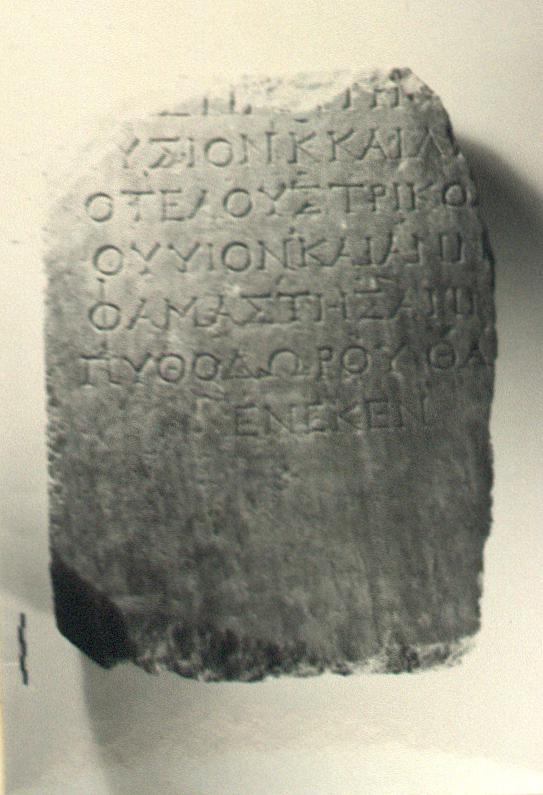 ΥΣΙΟΝΚΚΑΙΑ
ΟΤΕΛΟΥΣΤΡΙΚΟ
ΟΥΥΙΟΝΚΑΙΑΝΝ
ΘΑΜΑΣΤΗΣΑΝΠ
ΠΥΘΟΔΩΡΟΥΘΑ
ΕΝΕΚΕΝ